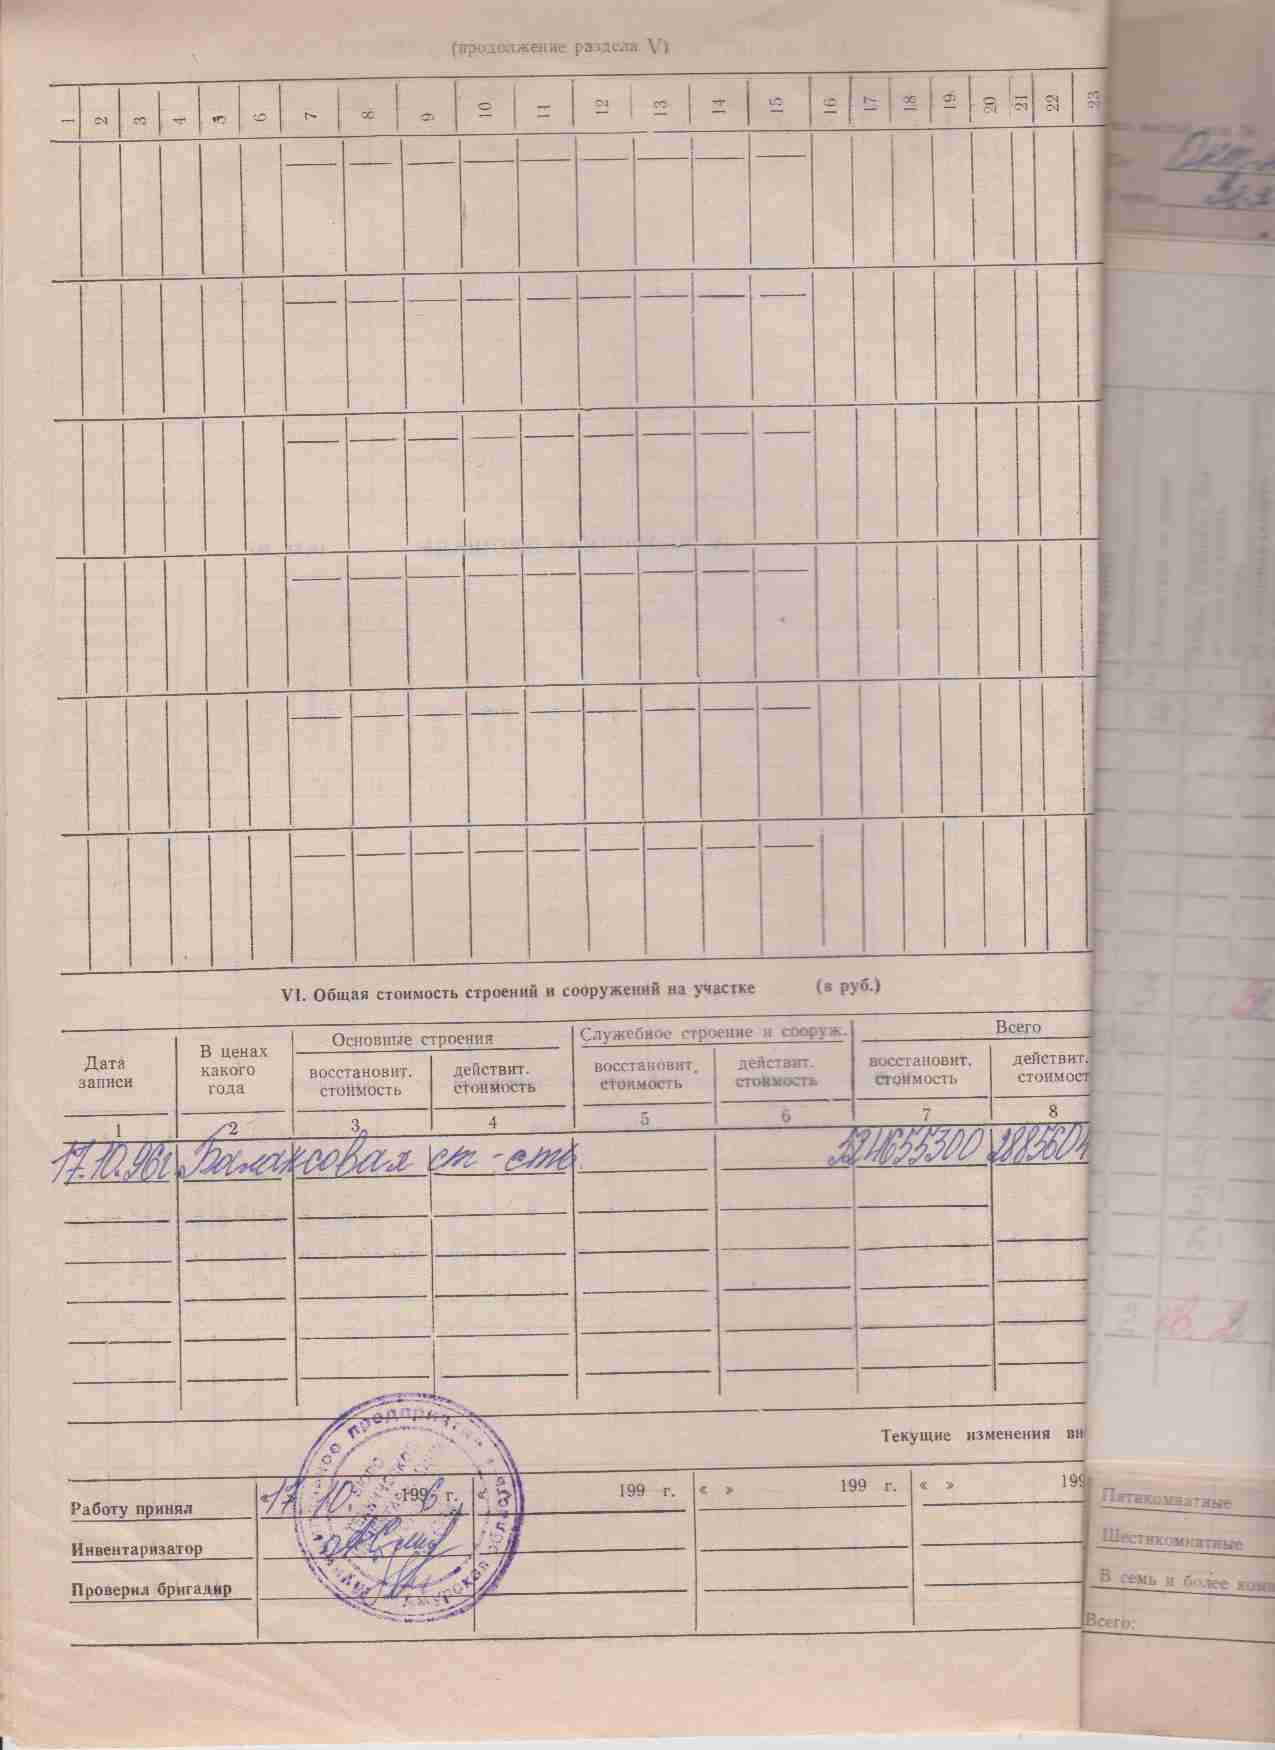 (продолжение раздела V)
1 2 3 4 5 6 7 8 9 10 11 12 13 14 15 16 17 18 19 20 21 22 23
VI. Общая стоимость строений и сооружений на участке (в руб.)
Дата записи
В ценах какого года
Основные строения
Служебное строение и сооруж.
Всего
восстановит. стоимость
действит. стоимость
восстановит. стоимость
действит. стоимость
восстановит. стоимость
действит. стоимост
1 2 3 4 5 6 7 8
17.10.96г. Балансовая ст-сть. 524655300 2885604
Текущие изменения вн
Работу принял «17 10 1996 г. 199 г. « » 199 г. « » 199
Инвентаризатор
Проверил бригадир
предприятие
Амурская область
Пятикомнатные
Шестикомнатные
В семь и более комн
Всего: